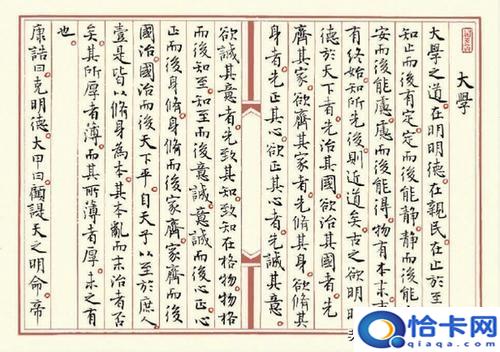 大學
大學之道在明明德在親民在止於至
知止而後有定定而後能靜靜而後能
安而後能慮慮而後能得物有本末
有終始知所先後則近道矣古之欲明
德於天下者先治其國欲治其國者先
齊其家欲齊其家者先脩其身欲脩其
身者先正其心欲正其心者先誠其意
欲誠其意者先致其知致知在格物物格
而後知至知至而後意誠意誠而後心正心
正而後身脩身脩而後家齊家齊而後
國治國治而後天下平自天子以至於庶人
壹是皆以脩身為本其本亂而末治者否
矣其所厚者薄而其所薄者厚未之有
也
康誥曰克明德大甲曰顧諟天之明命帝
恰卡网
qiaqa.com